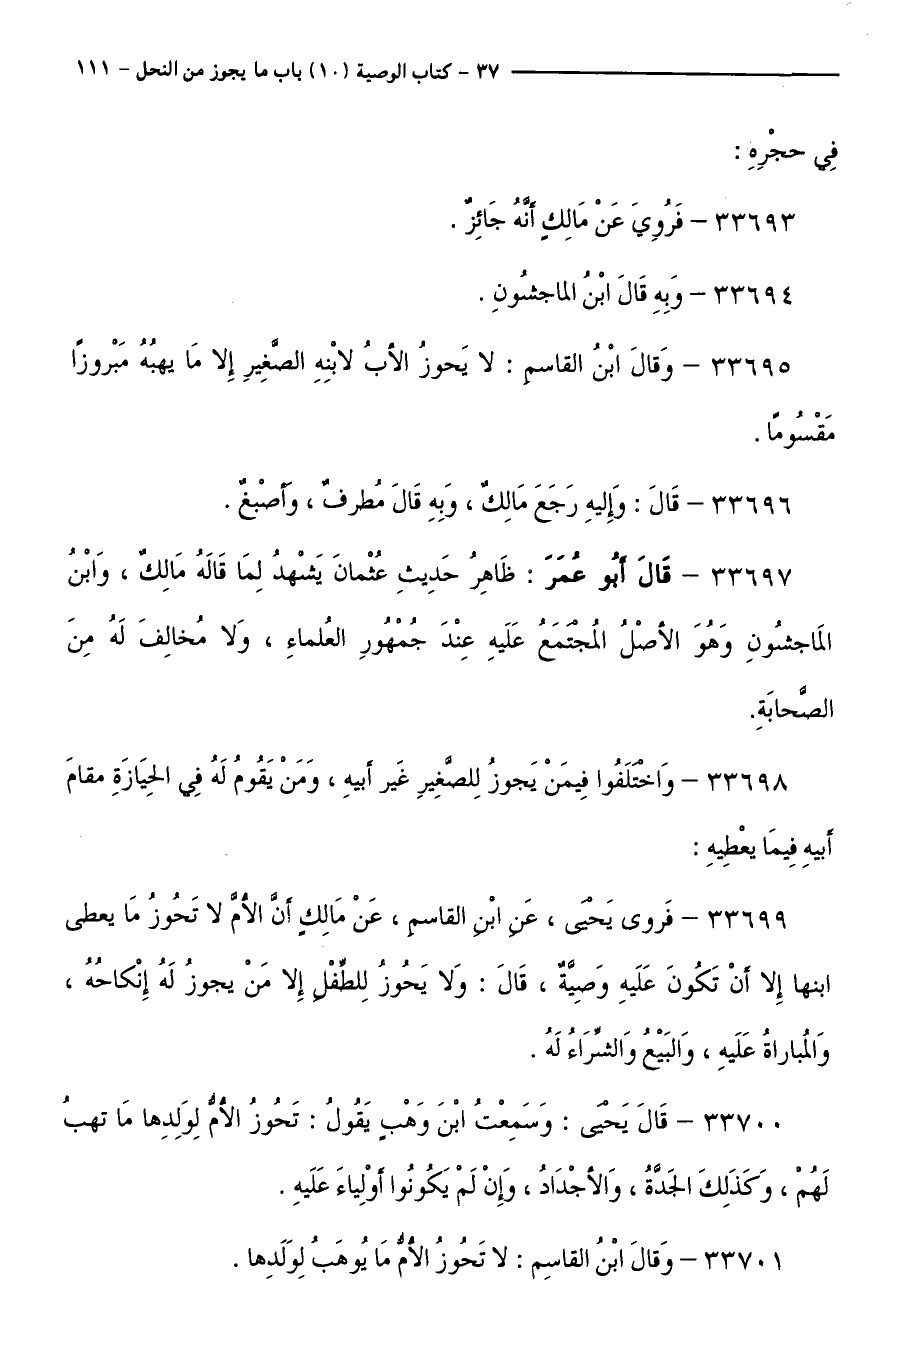 ٣٧ - كتاب الوصية (١٠) باب ما يجوز من النحل - ١١١
فِي حجْرِهِ :
٣٣٦٩٣ - فَرُوِيَ عَنْ مَالِكٍ أَنَّهُ جَائِزٌ .
٣٣٦٩٤ - وَبِهِ قَالَ ابْنُ الماجشُونِ .
٣٣٦٩٥ - وَقَالَ ابْنُ القاسمِ : لا يَحوزُ الأبُ لابْنِهِ الصَّغِيرِ إِلا مَا يهبُهُ مَبْروزًا
مَقْسُومًا .
٣٣٦٩٦ - قَالَ : وَإِليهِ رَجَعَ مَالِكٌ ، وَبِهِ قَالَ مُطرفٌ ، وَأَصْبغٌ .
٣٣٦٩٧ - قَالَ أَبُو عُمَرَ : ظَاهِرُ حَدِيثِ عثْمانَ يَشْهدُ لِمَا قَالَهُ مَالِكٌ ، وَابْنُ
الَماجشُونِ وَهُوَ الأصْلُ الُمجْتَمَعُ عَلَيهِ عِنْدَ جُمْهُورِ العُلماءِ ، وَلا مُخالِفَ لَهُ مِنَ
الصَّحابَةِ.
٣٣٦٩٨ - وَاخْتَلَفُوا فِيمَنْ يَجوزُ لِلصَّغِيرِ غَير أبيهِ ، وَمَنْ يَقُومُ لَهُ فِي الحِيَازَةِ مقامَ
أَبيهِ فِيمَا يعْطِيهِ :
٣٣٦٩٩ - فَروى يَحْيَى ، عَنِ ابْنِ القاسمِ ، عَنْ مَالِكٍ أَنَّ الأمَّ لا تَحُوزُ مَا يعطى
ابنها إِلا أَنْ تَكُونَ عَلَيهِ وَصِيَّةٌ ، قَالَ : وَلا يَحُوزُ لِلطِّفْلِ إِلا مَنْ يجوزُ لَهُ إِنْكاحُهُ ،
وَالُمباراةُ عَلَيهِ ، وَالبَيْعُ وَالشِّرَاءُ لَهُ .
٣٣٧٠٠ - قَالَ يَحْيَى : وَسَمِعْتُ ابْنَ وَهْبٍ يَقُولُ : تَحُوزُ الأمُّ لِوَلِدِها مَا تهبُ
لَهُمْ ، وَكَذَلِكَ الجَدَّةُ ، وَالأجْدَادُ ، وَإِنْ لَمْ يَكُونُوا أَوْلِياءَ عَلَيهِ .
٣٣٧٠١ - وَقَالَ ابْنُ القاسِمِ : لا تَحُوزُ الأمُّ مَا يُوهَبُ لِوَلَدِها .